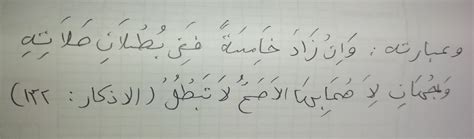 وعبارته : وَإِنْ زَادَ خَامِسَةً فَفِى بُطْلَانِ صَلَاتِهِ
وَجْهَانِ لِأَصْحَابِنَا الْأَصَحُّ لَا تَبْطُلُ (الاذكار : ١٣٢)